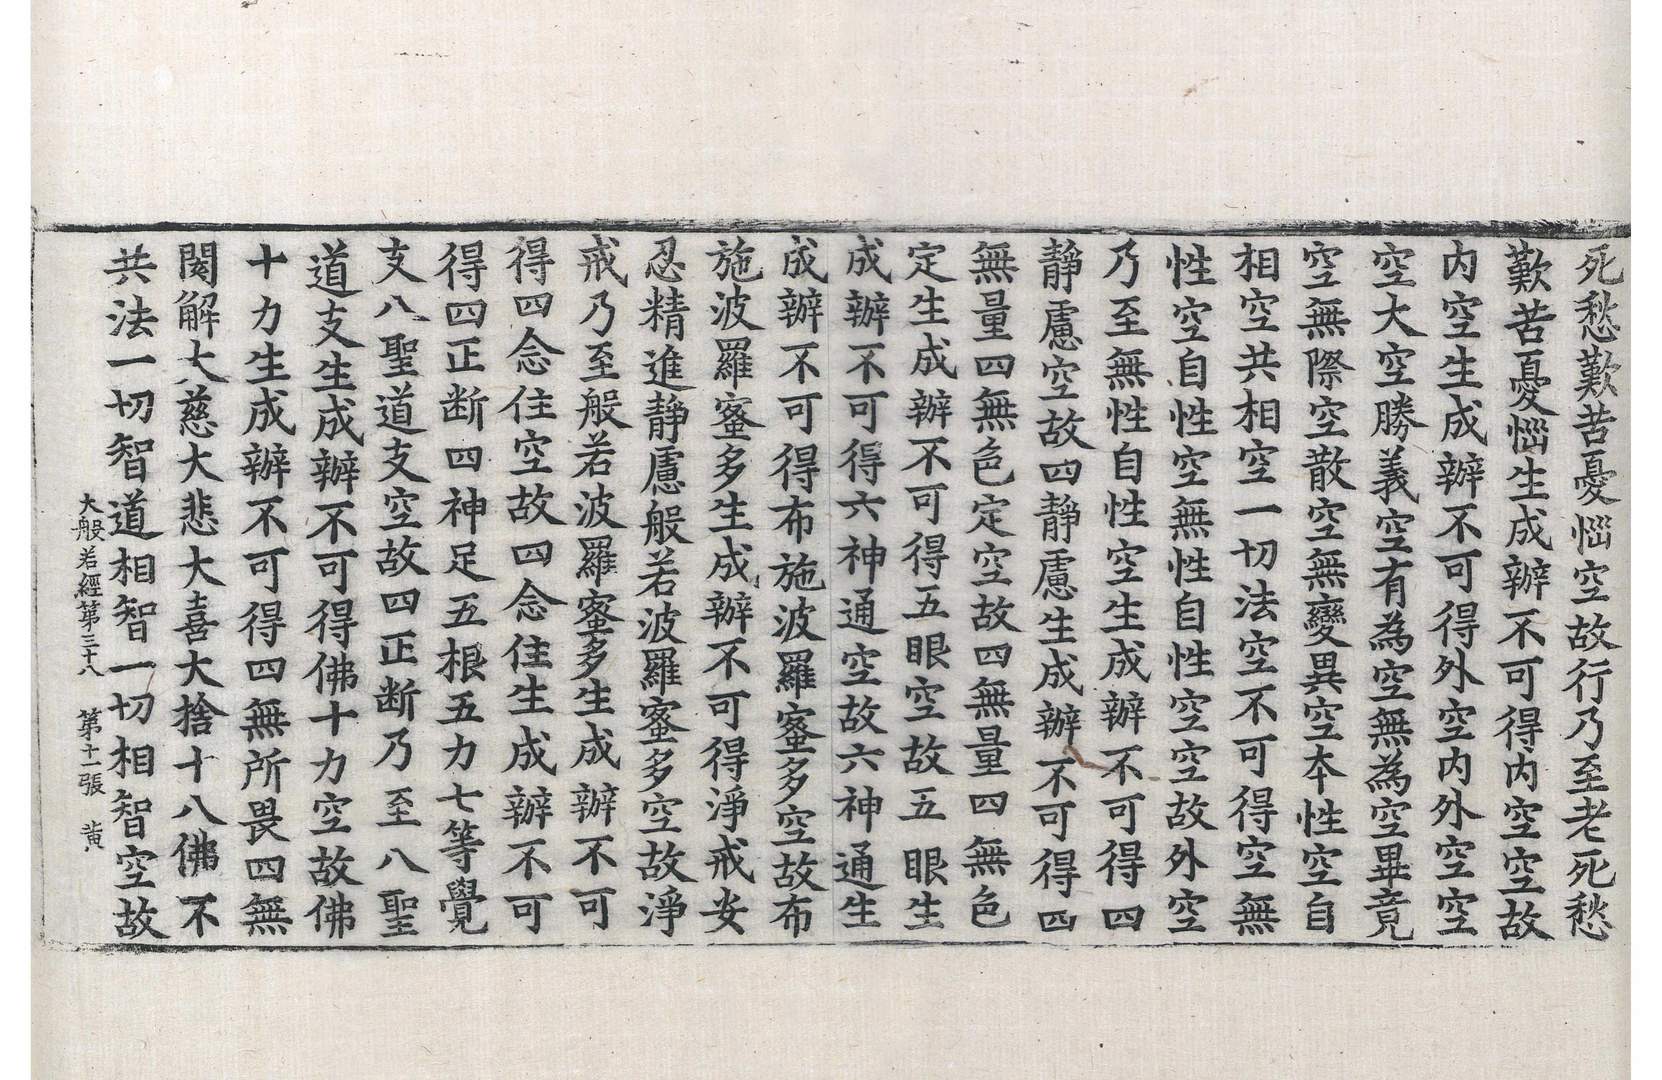 死愁歎苦憂惱空故行乃至老死愁
歎苦憂惱生成辦不可得内空空故
内空生成辦不可得外空内外空空
空大空勝義空有為空無為空畢竟
空無際空散空無變異空本性空自
相空共相空一切法空不可得空無
性空自性空無性自性空空故外空
乃至無性自性空生成辦不可得四
靜慮空故四靜慮生成辦不可得四
無量四無色定空故四無量四無色
定生成辦不可得五眼空故五眼生
成辦不可得六神通空故六神通生
成辦不可得布施波羅蜜多空故布
施波羅蜜多生成辦不可得淨戒安
忍精進靜慮般若波羅蜜多空故淨
戒乃至般若波羅蜜多生成辦不可
得四念住空故四念住生成辦不可
得四正断四神足五根五力七等覺
支八聖道支空故四正断乃至八聖
道支生成辦不可得佛十力空故佛
十力生成辦不可得四無所畏四無
閡解大慈大悲大喜大捨十八佛不
共法一切智道相智一切相智空故
大般若經第三十八 第十一張 黄